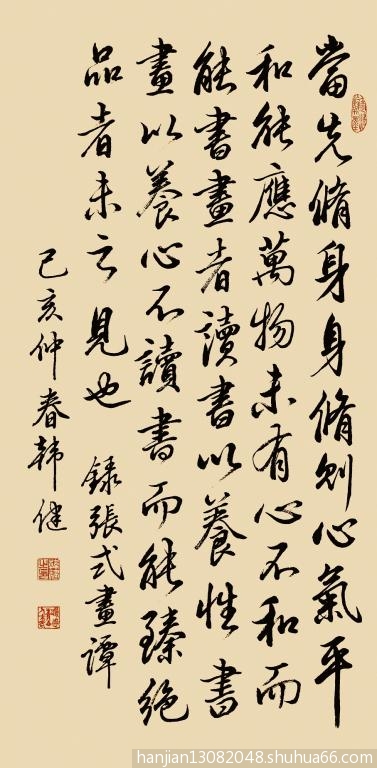 當先脩身身脩則心氣平
和能應萬物未有心不和而
能書畫者讀書以養性書
畫以養心不讀書而能臻絕
品者未之見也 録張式畫譚
己亥仲春韩健
hanjian13082048.shuhua66.com